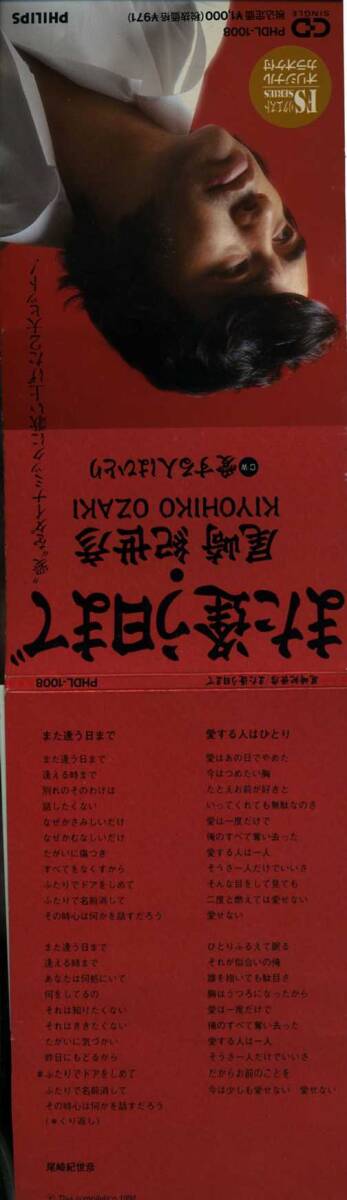 PHILIPS
PHDL-1008
税込定価¥1,000(税抜価格¥971)
CD
SINGLE
リクエスト
FS
SERIES
オリジナル
カラオケ付
“愛”をダイナミックに歌い上げた2大ヒット!
また逢う日まで
尾崎紀世彦
KIYOHIKO OZAKI
C/W 愛する人はひとり
PHDL-1008
尾崎紀世彦 また逢う日まで
また逢う日まで
また逢う日まで
逢える時まで
別れのそのわけは
話したくない
なぜかさみしいだけ
なぜかむなしいだけ
たがいに傷つき
すべてをなくすから
ふたりでドアをしめて
ふたりで名前消して
その時心は何かを話すだろう
また逢う日まで
逢える時まで
あなたは何処にいて
何をしてるの
それは知りたくない
それはききたくない
たがいに気づかい
昨日にもどるから
*ふたりでドアをしめて
ふたりで名前消して
その時心は何かを話すだろう
(*くり返し)
愛する人はひとり
愛はあの日でやめた
今はつめたい胸
たとえお前が好きと
いってくれても無駄なのさ
愛は一度だけで
俺のすべて奪い去った
愛する人は一人
そうさ一人だけでいいさ
そんな目をして見ても
二度と燃えては愛せない
愛せない
ひとりふるえて眠る
それが似合いの俺
誰を抱いても駄目さ
胸はうつろになったから
愛は一度だけで
俺のすべて奪い去った
愛する人は一人
そうさ一人だけでいいさ
だからお前のことを
今は少しも愛せない 愛せない
尾崎紀世彦